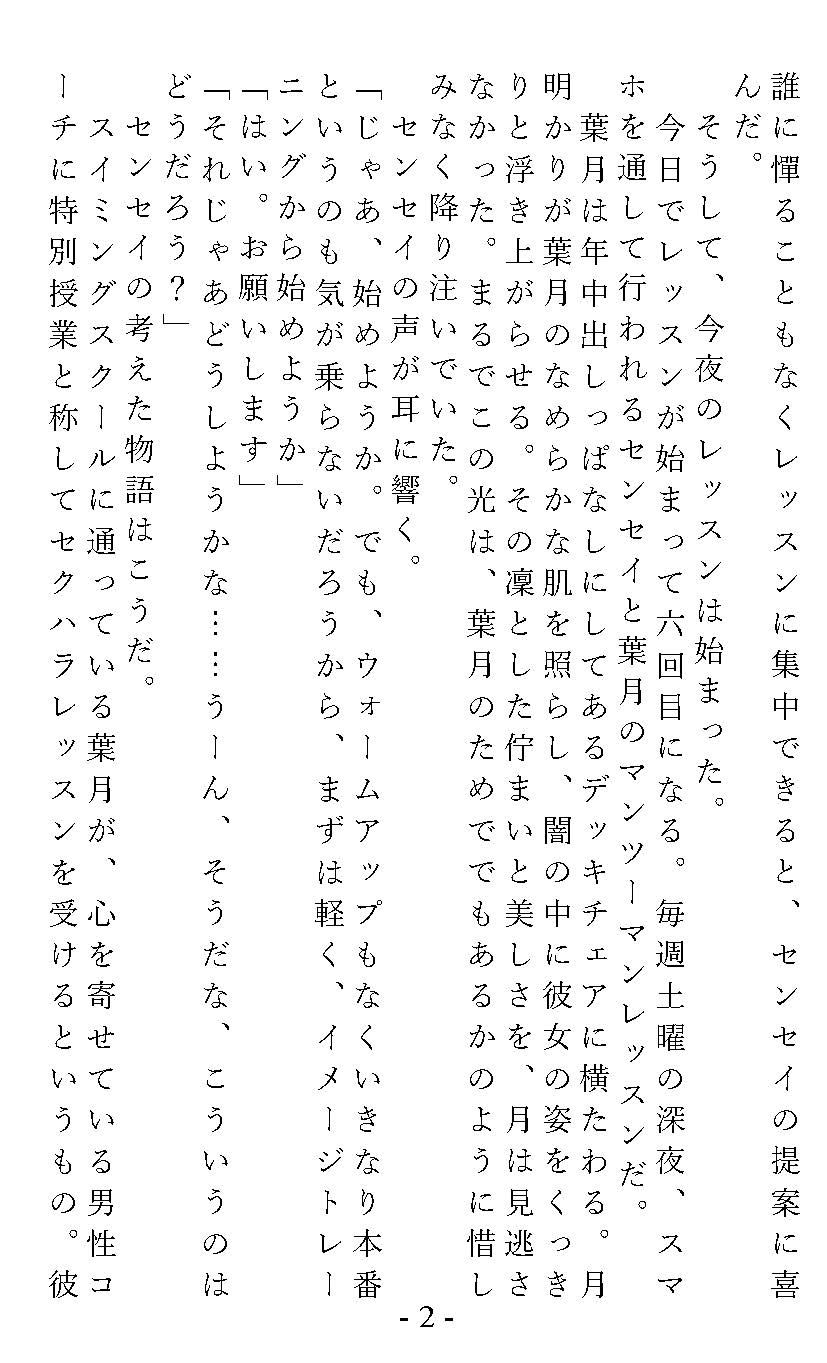 誰に憚ることもなくレッスンに集中できると、センセイの提案に喜
んだ。
　そうして、今夜のレッスンは始まった。
　今日でレッスンが始まって六回目になる。毎週土曜の深夜、スマ
ホを通して行われるセンセイと葉月のマンツーマンレッスンだ。
　葉月は年中出しっぱなしにしてあるデッキチェアに横たわる。月
明かりが葉月のなめらかな肌を照らし、闇の中に彼女の姿をくっき
りと浮き上がらせる。その凛とした佇まいと美しさを、月は見逃さ
なかった。まるでこの光は、葉月のためででもあるかのように惜し
みなく降り注いでいた。
　センセイの声が耳に響く。
「じゃあ、始めようか。でも、ウォームアップもなくいきなり本番
というのも気が乗らないだろうから、まずは軽く、イメージトレー
ニングから始めようか」
「はい。お願いします」
「それじゃあどうしようかな……うーん、そうだな、こういうのは
どうだろう？」
　センセイの考えた物語はこうだ。
　スイミングスクールに通っている葉月が、心を寄せている男性コ
ーチに特別授業と称してセクハラレッスンを受けるというもの。彼
- 2 -